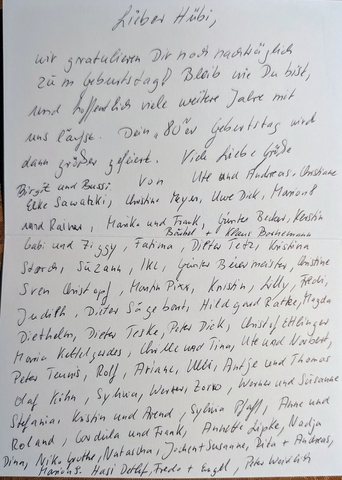 Lieber Hübi,
wir gratulieren Dir noch nachträglich
zum Geburtstag! Bleib wie Du bist,
und hoffentlich viele weitere Jahre mit
uns . Dein "80"er Geburtstag wird
dann größer gefeiert. Viele Liebe Grüße
Birgit und Bussi. von Ute und Andreas, Christiane
Elke Sawatzki, Christine Meyer, Uwe Dick, Marion
und Rainer, Mariko und Frank, Günter Becker, Kerstin
Bübel + Klaus
Gabi und Ziggy, Fatima, Dieter Tetz, Kristina
Storch, Süzann, Iki, Günter Beiermeister, Christine
Sven Christoph, Martin Pixx, Kristin, Lilly, Fredi,
Judith, Dieter Sägebart, Hildegard Ratke, Magda
Diethelm, Dieter Teske, Peter Dick, Christof Ettlinger
Maria , und Tina, Ute und Norbert,
Peter , Rolf, Ariane, Ulli, Antje und Thomas
Olaf Kühn, Sylvia, Werner , Werner und Susanne
Stefanie, Kristin und Arend, Sylvia Pfaff, Anne und
Roland, Cordula und Frank, Annette Lipke, Nadja
Dina, Niko , Natascha, Jochen + Susanne, Rita + Andreas,
, Hasi Detlef, Fredo + Engel, Peter